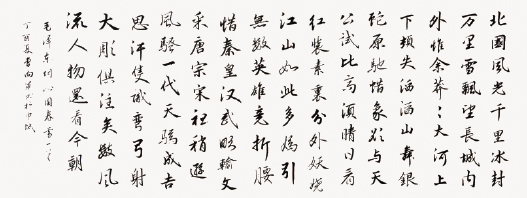 北國風光千里冰封
万里雪飄望長城内
外惟余莽々大河上
下頓失滔滔山舞銀
蛇原馳惜象欲与天
公試比高須晴日看
红裝素裹分外妖娆
江山如此多嬌引
無數英雄竞折腰
惜秦皇汉武略輸文
采唐宗宋祖稍遜
風騷一代天骄成吉
思汗隻識彎弓射
大彫俱往矣數風
流人物還看今朝
毛泽东词沁園春雪一首
丁酉